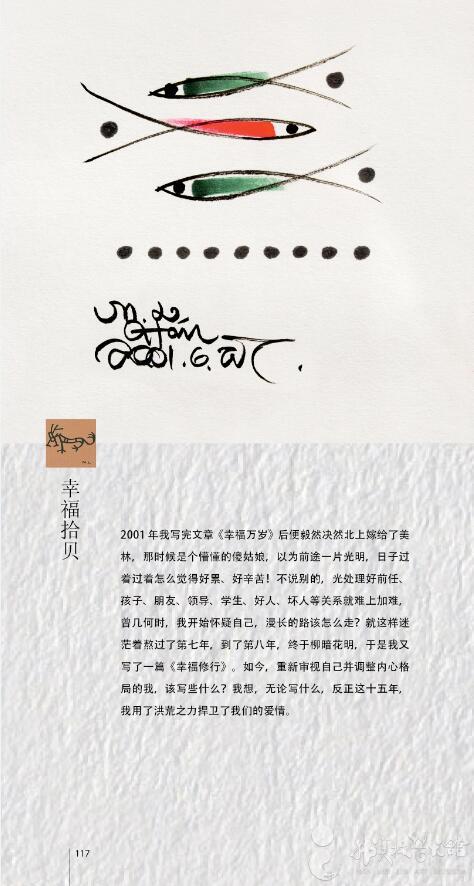 2001.6.
幸福拾贝
2001 年我写完文章《幸福万岁》后便毅然决然北上嫁给了美
林，那时候是个懵懂的傻姑娘，以为前途一片光明，日子过
着过着怎么觉得好累、好辛苦！不说别的，光处理好前任、
孩子、朋友、领导、学生、好人、坏人等关系就难上加难，
曾几何时，我开始怀疑自己，漫长的路该怎么走？就这样迷
茫着熬过了第七年，到了第八年，终于柳暗花明，于是我又
写了一篇《幸福修行》。如今，重新审视自己并调整内心格
局的我，该写些什么？我想，无论写什么，反正这十五年，
我用了洪荒之力捍卫了我们的爱情。
117